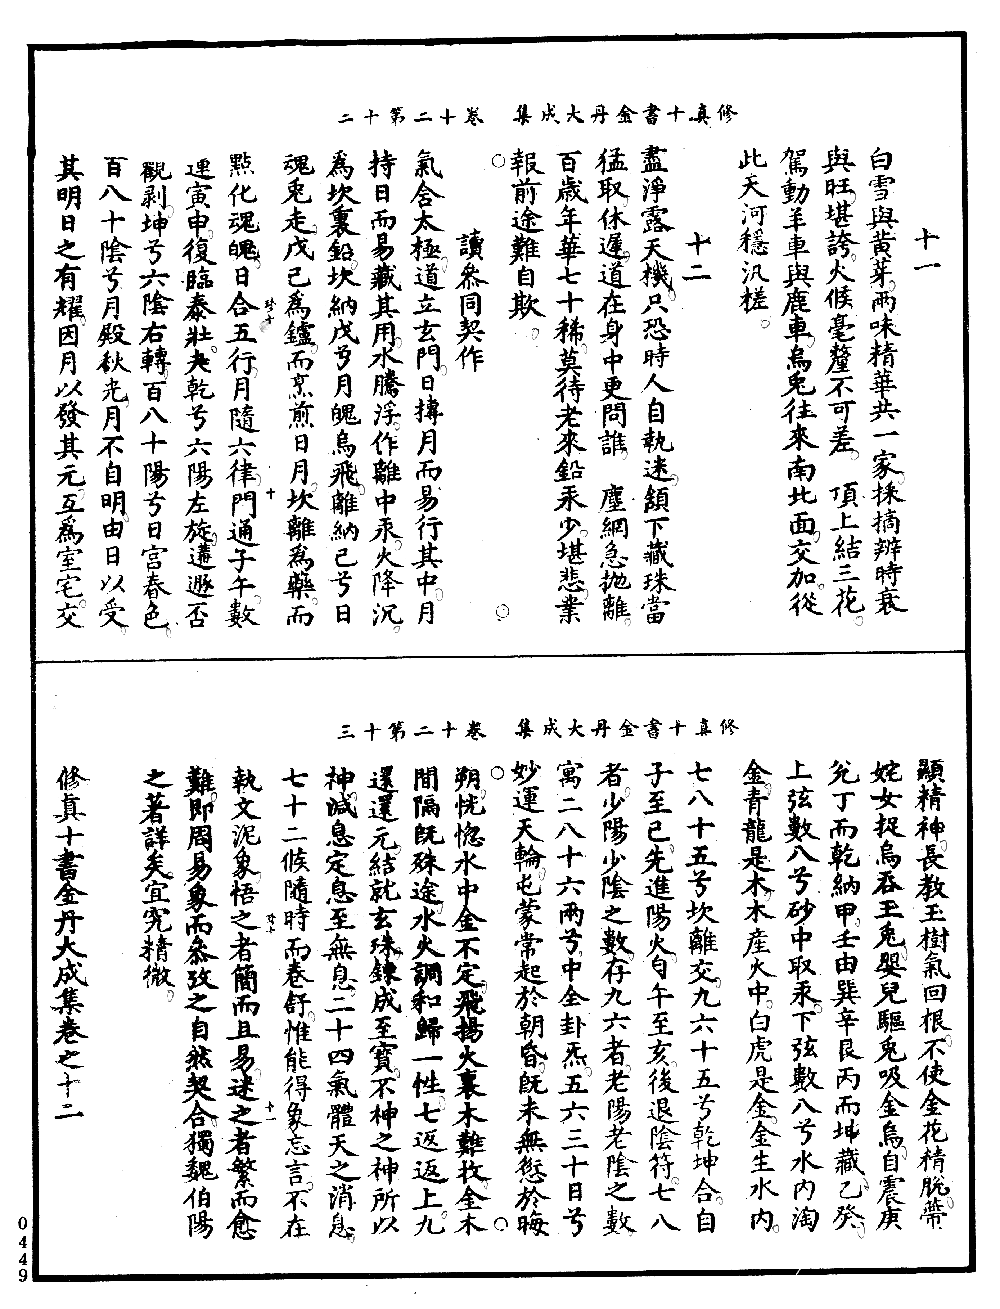 修真十書金丹大成集　卷十二第十二
十一
白雪與黃芽。兩味精華共一家。採摘辨時衰
與旺。堪誇。火候毫釐不可差。　頂上結三花。
駕動羊車與鹿車。烏兔往來南北面。交加。從
此天河穩汎槎。
十二
盡淨露天機。只恐時人自執迷。頷下藏珠當
猛取。休遲。道在身中更問誰。　塵網急拋離。
百歲年華七十稀。莫待老來鉛汞少。堪悲。業
報前途難自欺。
讀參同契作
氣含太極。道立玄門。日摶月而易行其中。月
持日而易藏其用。水騰浮。作離中汞。火降沉。
為坎裏鉛。坎納戊兮月魄烏飛。離納己兮日
魂兔走。戊己為鑪。而烹煎日月。坎離為藥。而
點化魂魄。日合五行。月隨六律。門通子午。數
運寅申。復臨泰壯夬乾兮。六陽左旋。遘遯否
觀剥坤兮。六陰右轉。百八十陽兮。日宮春色。
百八十陰兮。月殿秋光。月不自明。由日以受
其明。日之有耀。因月以發其元。互為室宅。交
修真十書金丹大成集　卷十二第十三
顯精神。長教玉樹氣回根。不使金花精脫蔕。
姹女捉烏吞玉兔。嬰兒驅兔吸金烏。自震庚
兌丁而乾納甲壬。由巽辛艮丙而坤藏乙癸。
上弦數八兮砂中取汞。下弦數八兮水內淘
金。青龍是木。木產火中。白虎是金。金生水內。
七八十五兮坎離交。九六十五兮乾坤合。自
子至巳。先進陽火。自午至亥。後退陰符。七八
者。少陽少陰之數。存九六者。老陽老陰之數
寓二八十六兩兮。中全卦炁。五六三十日兮
妙運天輪。屯蒙常起於朝昏。既未無愆於晦
朔。恍惚水中金不定。飛揚火裏木難收。金木
間隔既殊途。水火調和歸一性。七返返上。九
還還元。結就玄珠。鍊成至寶。不神之神所以
神。滅息定息至無息。二十四氣體天之消息。
七十二候隨時而卷舒。惟能得象忘言。不在
執文泥象。悟之者簡而且易。迷之者繁而愈
難。即周易象而參攷之。自然契合。獨魏伯陽
之著詳矣。宜究精微。
修真十書金丹大成集卷之十二
0449